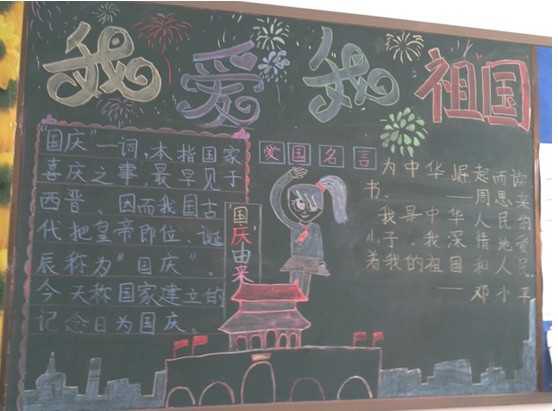 我爱我祖国
"国庆"一词,本指国家
喜庆之事,最早见于
西晋。因而我国古
代把皇帝即位、诞
辰称为"国庆"。
今天称国家建立的
纪念日为国庆。
国庆由来
爱国名言
为中华崛起而读
书。——周恩来
我是中华人民的
儿子,我深情地爱
着我的祖国和人民。
——邓小平